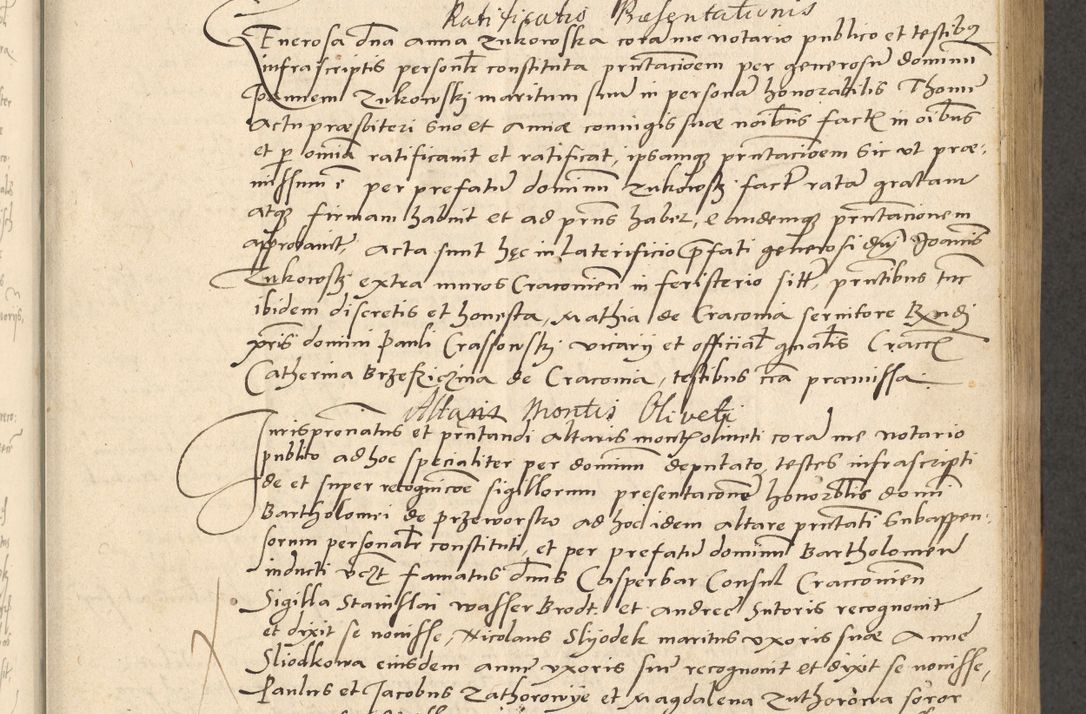 Ratificatio Præsentationis
Enerosa dna anna Zukowska cora me notario publico et testibus
infrascriptis personlr constituta pntacioem per generosu dominu
Joannem Zukowskj maritum suu in persona honorabilis Thome
Actu præsbiteri suo et Annæ coniugis suæ noibus facta in oibus
et p omnia ratificauit et ratificat, ipsamq pntacioem sic ut præ-
missum e per prefatu dominu Zukowskj facta rata grataᵐ
atq firmam habuit et ad pns habet, eandemq pntacionem
approbauit, Acta sunt hęc in Laterificio pfati generosi dnj Joanis
Zukowskj extra muros Cracouien in feristerio sitt, pntibus tuc
ibidem discretis et honesta, Mathia de Cracouia seruitore Rndj
pris domini Pauli Crassowskj vicarij et officialis gnalis Cracc
Catherina Brzesziczna de Cracouia, testibus cca præmissa
Altaris Montis Oliueti
Jurispronatus et pntandi altaris montisoliueti cora me notario
publico ad hoc specialiter per dominum deputato, testes infrascripti
de et super recognicoe sigillorum presentacone honorblis domi
Bartholomei de Przeworsko ad hoc idem altare pntati subappen-
sorum personalr constituti, et per prefatu dominu Bartholomeu
inducti vczt famatus dnus Casper bar Consul Cracouien
Sigilla Stanislai Wasserbrodt et Andreę Sutoris recognouit
et dixit se nouisse, Nicolaus Slyodek maritus vxoris suæ Annę
Sliodkowa eiusdem annę vxoris suę recognouit et dixit se nouisse,
Paulus et Jacobus Zathorowye et Magdalena Zuthorowa soror